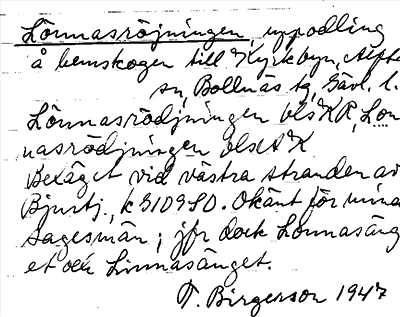 Lönnasröjningen, uppodling
å hemskogen till Kyrkbyn, Alfta
sn, Bollnäs tg, Gävl. l.
Lönnasrödjningen blsKR, Lön
nasrödjningen blst K
Beläget vid västra stranden av
Bjurtj., k 3109 SO. Okänt för mina
sagesmän; jfr dock Lönnasäng
et och Linnasänget.
T. Birgerson 1947